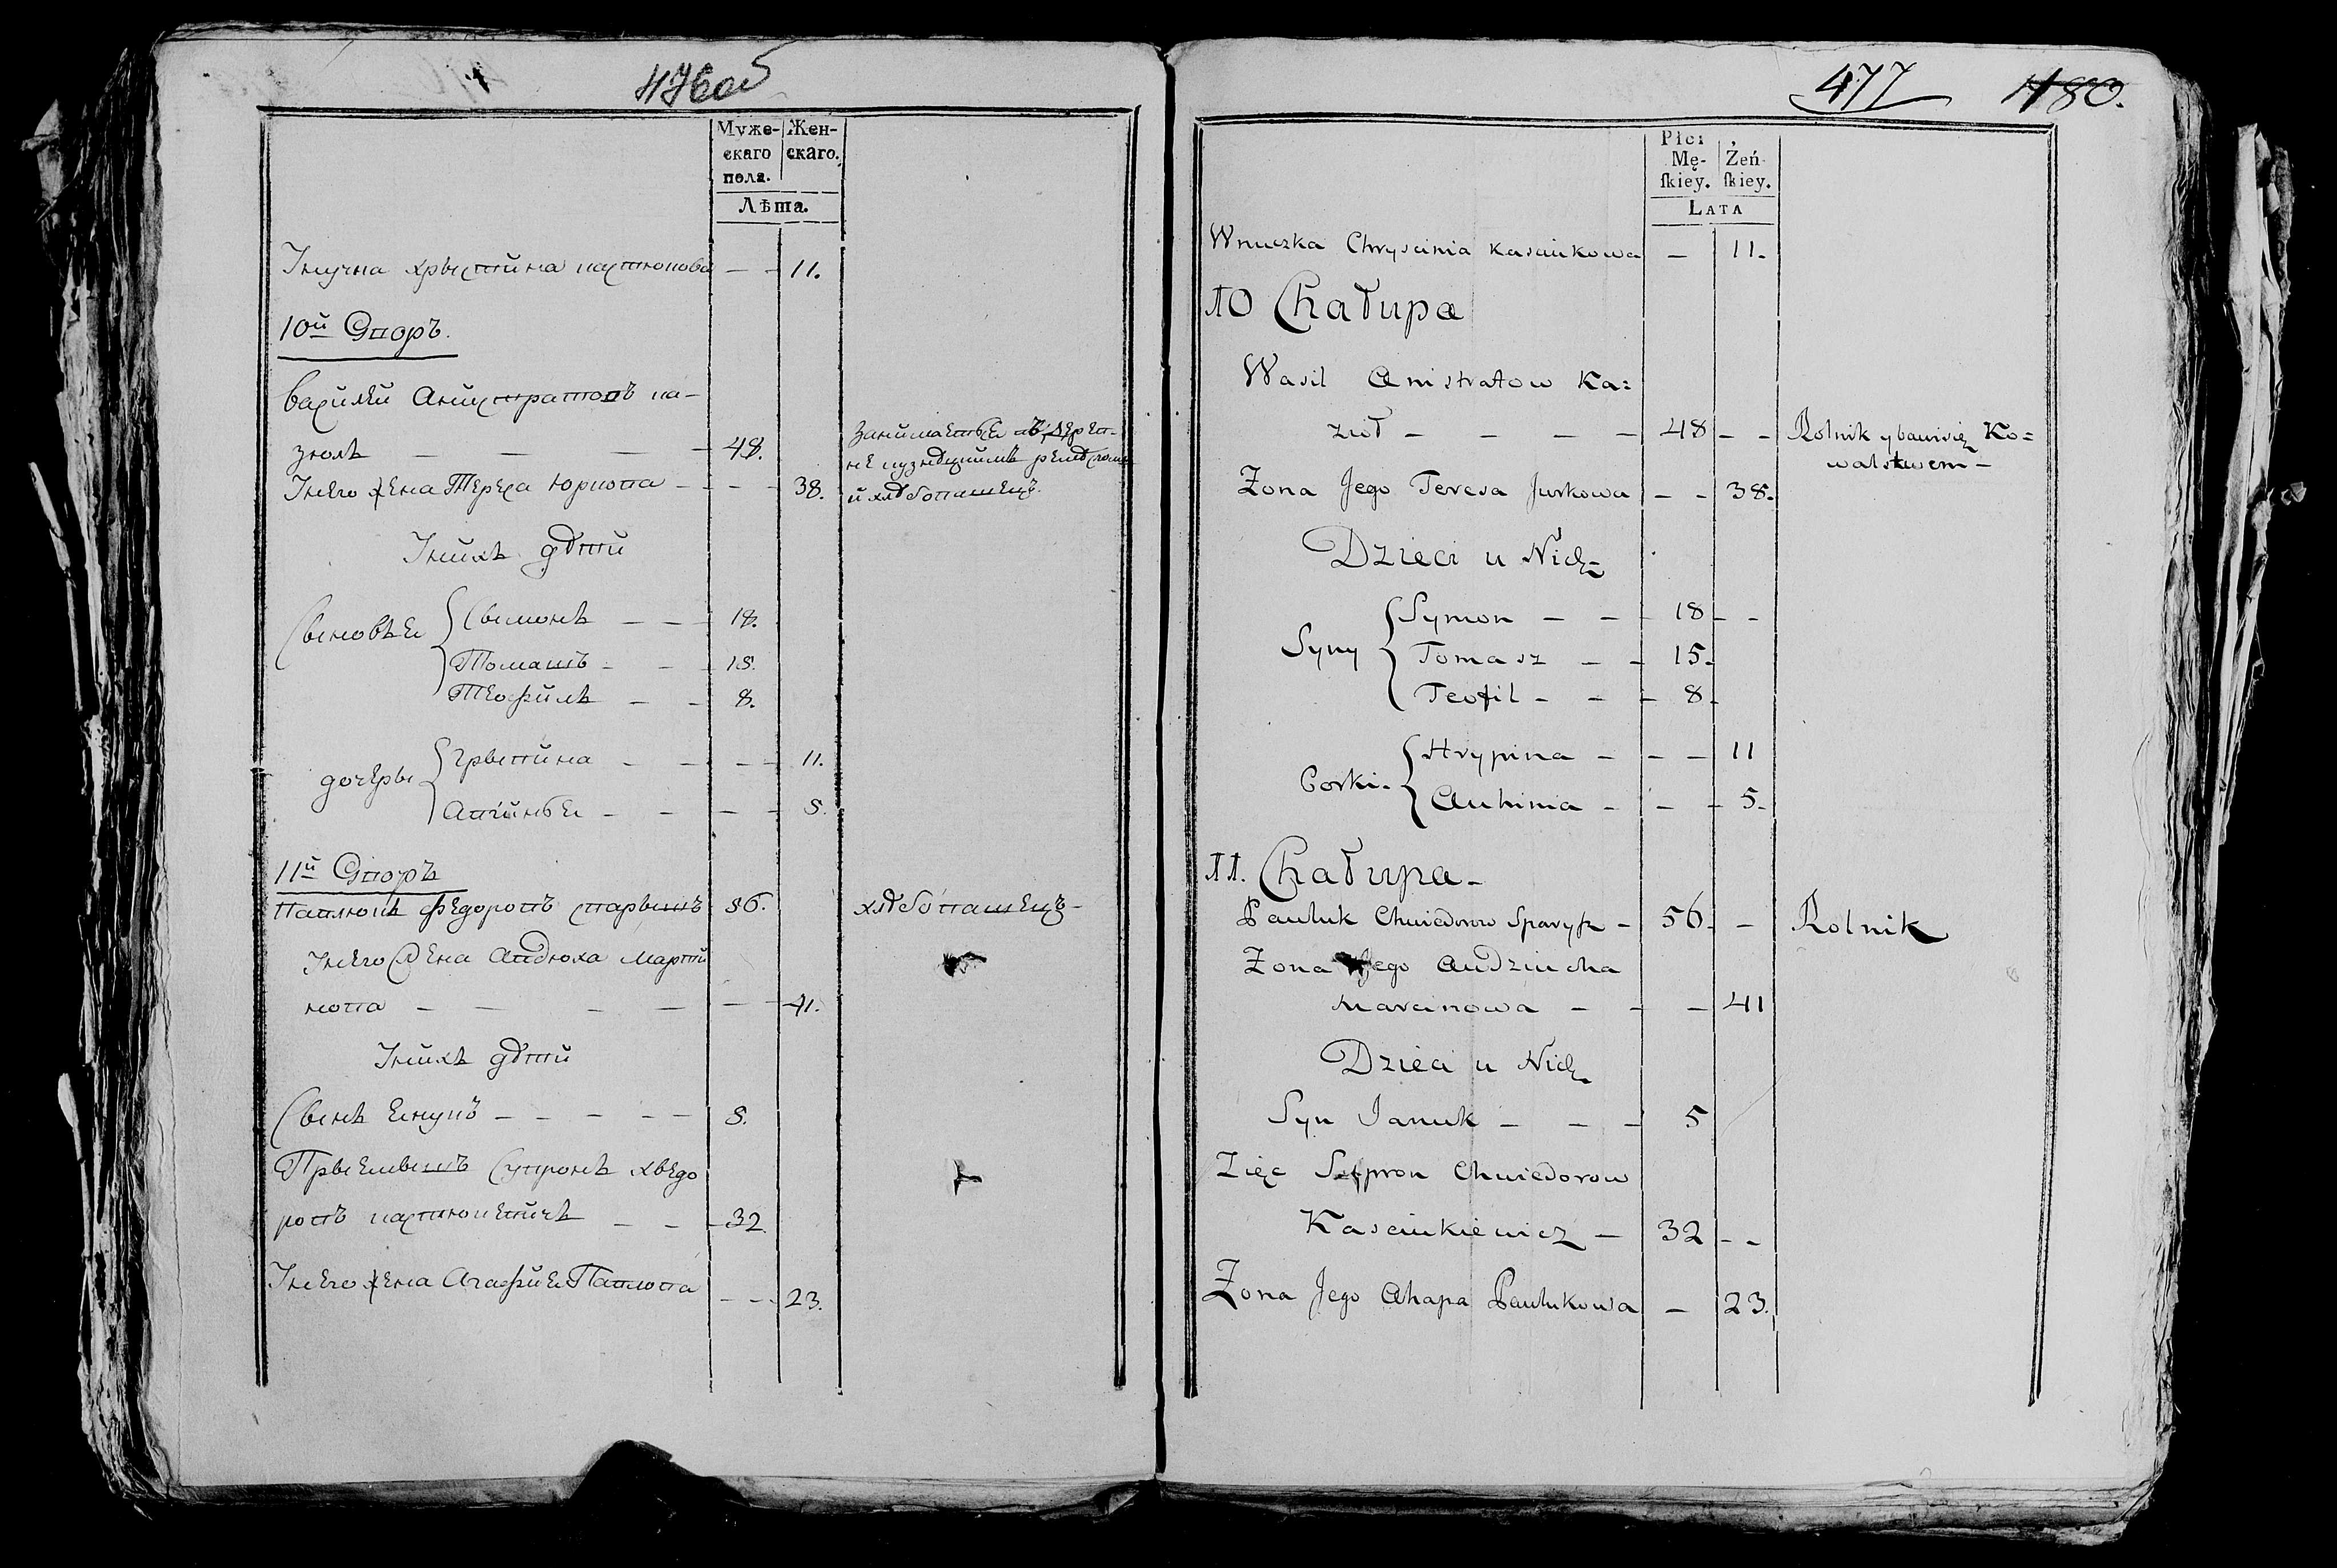 476об
Муже- Жен-
скаго скаго.
пола.
Лѣта.
Унучка хрыстина кастюкова — — 11.
10й Двѡръ.
Василѣй Анистратовъ ка-
зюлъ — — — — 48.
занимается въ дерев-
не кузнѣцкимъ ремѣсломъ
и хлѣбопашецъ.
Унего жена Тереса Юркова — — — 38.
Унихъ дѣти
Сыновѣя Сымонъ — — — 18.
Томашъ — — — 15.
Теофилъ — — 8.
дочеры Грыпина — — — — 11.
Авгинья — — — — 5.
11й Двѡръ
Павлюкъ Федоровъ спарышъ 56. хлѣбопашецъ —
Унего жена Авдюха Марти
нова — — — — — — 41.
Унихъ дѣти
Сынъ Янукъ — — — — — 5.
Прыемышъ Супронъ хведо
ровъ кастюкевичъ — — — 32
Унего жена Агафия Павлова — — — 23.
477 480.
Płci
Mę- Żeń-
ſkiey. ſkiey.
LATA
Wnuczka Chryscinia Kasciukowa — 11.
10 Chałupa
Wasil Anistratow Ka=
ziuł — — — — — 48 — — Rolnik y bawi się Ko=
walstwem —
Żona Jego Teresa Jurkowa — — 38.
Dzieci u Nich
Syny Symon — — — 18 — —
Tomasz — — 15.
Teofil — — — 8.
Corki. Hrypina — — — — 11
Auhinia — — — 5.
11. Chałupa —
Pauluk Chwiedorow Sparysz — 56. — Rolnik
Żona Jego Audziucha
Marcinowa — — — 41
Dzieci u Nich
Syn Januk — — — 5
Zięc Supron Chwiedorow
Kasciukiewicz — 32 — —
Żona Jego Ahapa Paulukowa — 23.